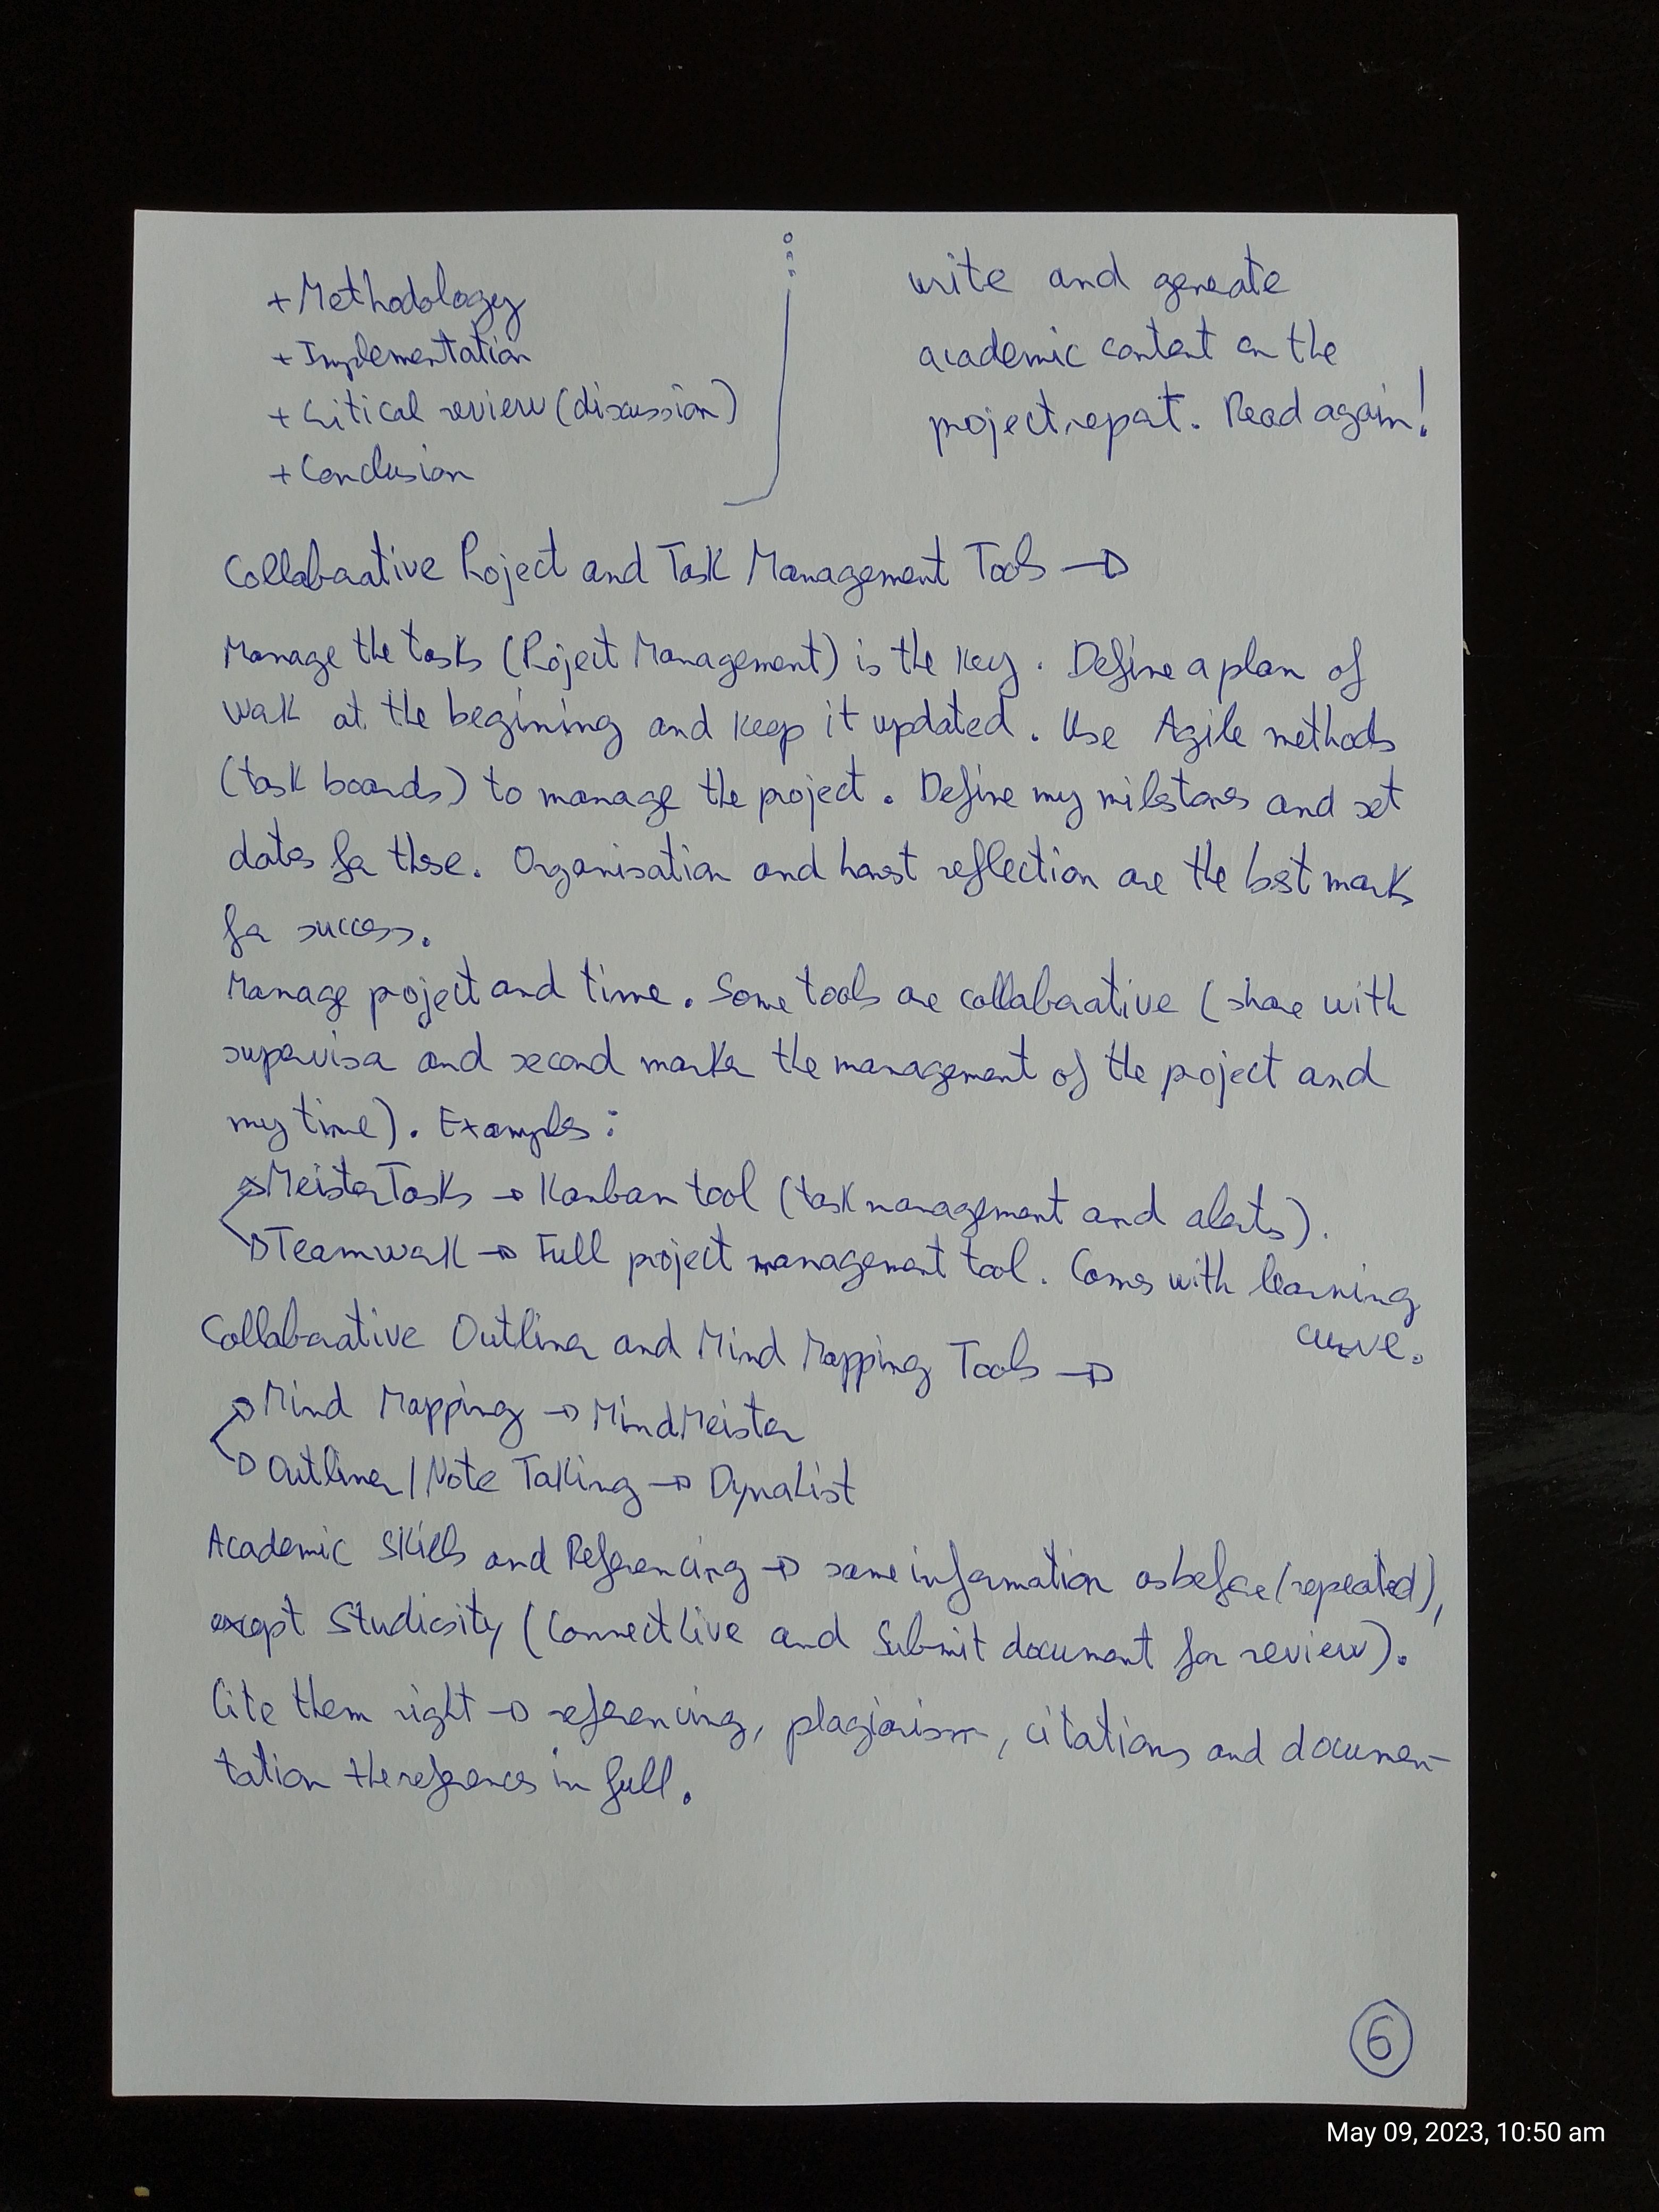 + Methodology
+ Implementation
+ Critical review (discussion)
+ Conclusion
write and generate
academic content on the
project report. Read again!
Collaborative Project and Task Management Tools →
Manage the tasks (Project Management) is the key. Define a plan of
work at the begining and keep it updated. Use Agile methods
(task boards) to manage the project. Define my milestones and set
dates for these. Organisation and honest reflection are the best marks
for success.
Manage project and time. Some tools are collaborative (share with
supervisor and second marker the management of the project and
my time). Examples:
→ MeisterTasks → Kanban tool (task management and alerts).
→ Teamwork → Full project management tool. Comes with learning
curve.
Collaborative Outliner and Mind Mapping Tools →
→ Mind Mapping → MindMeister
→ Outliner / Note Taking → DynaList
Academic Skills and Referencing → same information as before (repeated),
except Studiosity (Connect Live and Submit document for review).
Cite them right → referencing, plagiarism, citations and documen-
tation the references in full.
6
May 09, 2023, 10:50 am